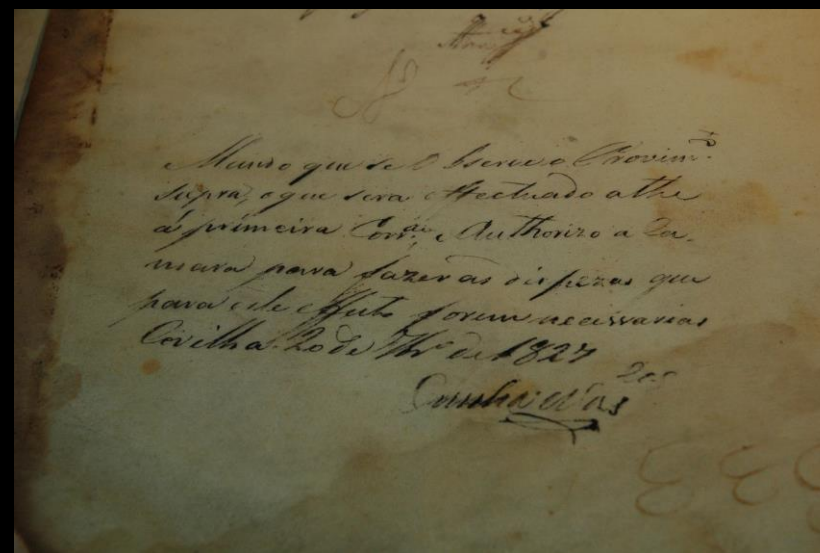 Mando que se Observe o Provim.to
supra, o que sera effectuado athe
á primeira Corr.am e Authorizo a Ca-
mara para fazer as despezas que
para este effeito forem necessarias
Covilhã 20 de de 1827
Cunha